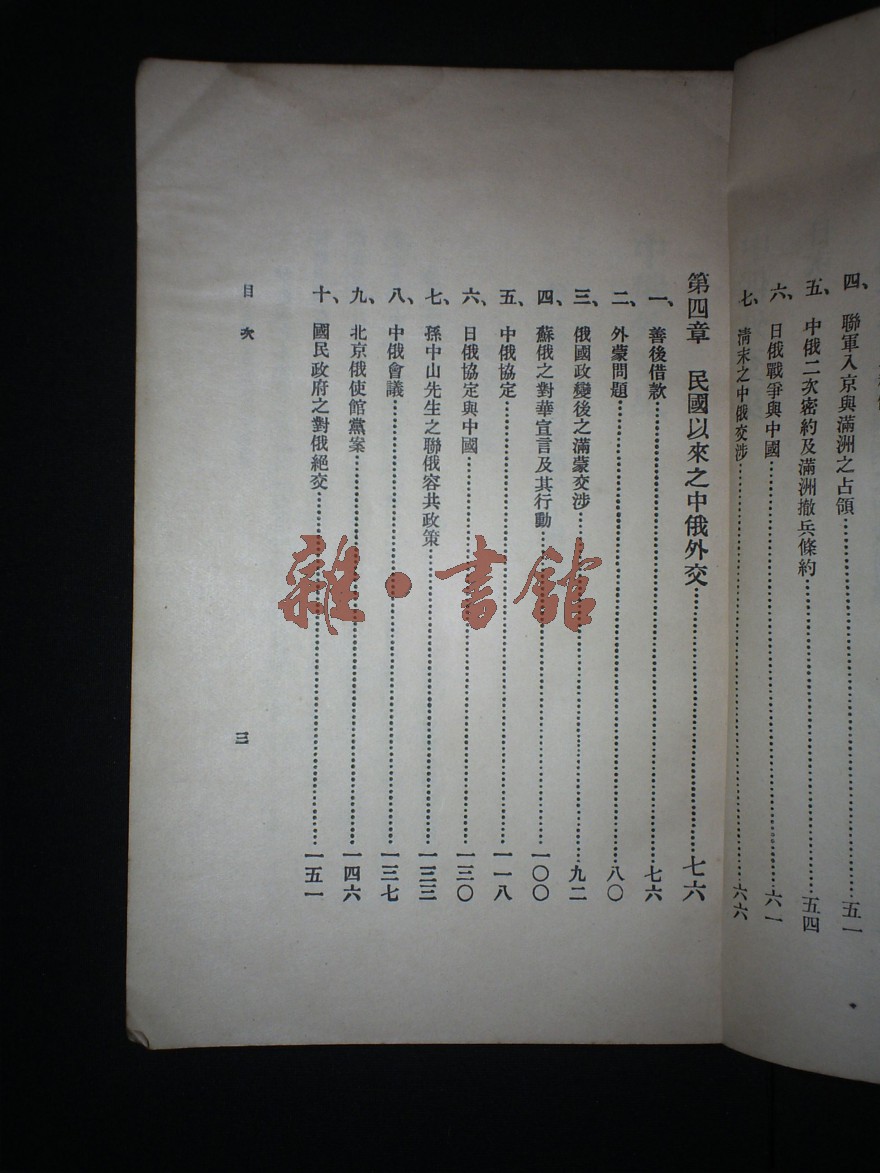 四、聯軍入京與滿洲之占領……五一
五、中俄二次密約及滿洲撤兵條約……五四
六、日俄戰爭與中國……六一
七、清末之中俄交涉……六六
第四章　民國以來之中俄外交……七六
一、善後借款……七六
二、外蒙問題……八〇
三、俄國政變後之滿蒙交涉……九二
四、蘇俄之對華宣言及其行動……一〇〇
五、中俄協定……一一八
六、日俄協定與中國……一三〇
七、孫中山先生之聯俄容共政策……一三三
八、中俄會議……一三七
九、北京俄使館黨案……一四六
十、國民政府之對俄絕交……一五一
目次
三
雜·書館